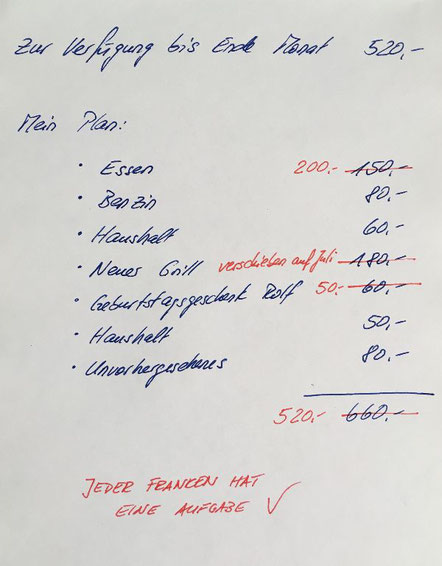 Zur Verfügung bis Ende Monat 520,-
Mein Plan:
· Essen 200.- 150,-
· Benzin 80,-
· Haushalt 60,-
· Neuer Grill verschieben auf Juli 180,-
· Geburtstagsgeschenk Rolf 50.- 60,-
· Haushalt 50,-
· Unvorhergesehenes 80,-
520,- 660,-
JEDER FRANKEN HAT
EINE AUFGABE ✓